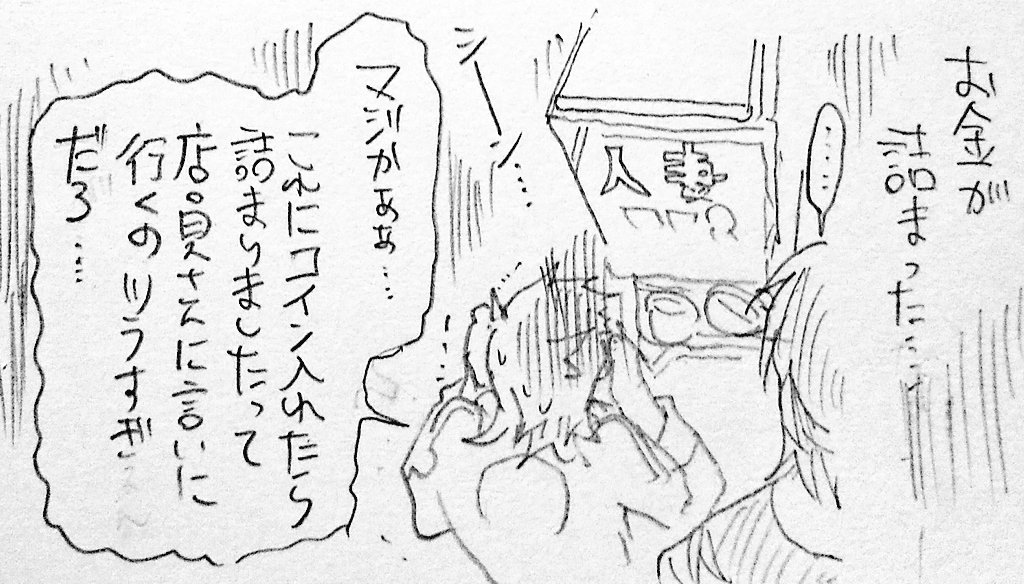 お金が
詰まった…
……
シーン…
マジかぁぁ…
これにコイン入れたら
詰まりましたって
店員さんに言いに
行くのツラすぎ
だろ……